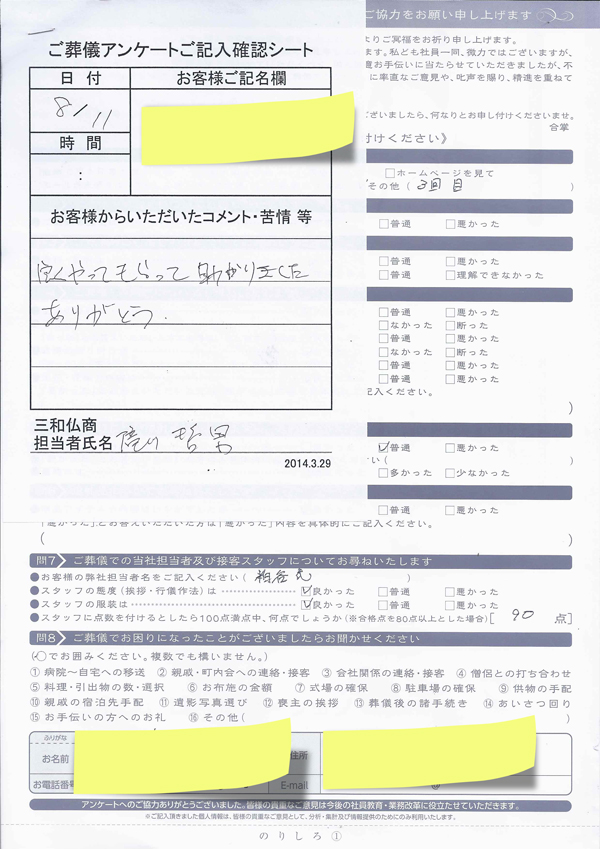 ご協力をお願い申し上げます
よりご冥福をお祈り申し上げます。
ます。私ども社員一同、微力ではございますが、
意お手伝いに当たらせていただきましたが、不
に率直なご意見や、叱声を賜り、精進を重ねて
ざいましたら、何なりとお申し付けくださいませ。
合掌
付けください》
□ホームページを見て
その他（3回目
□普通 □悪かった
□普通 □悪かった
□普通 □理解できなかった
□普通 □悪かった
□なかった □断った
□普通 □悪かった
□なかった □断った
□普通 □悪かった
□普通 □悪かった
記入ください。
）
☑普通 □悪かった
い（ ）
□多かった □少なかった
□普通 □悪かった
ご葬儀アンケートご記入確認シート
日付 お客様ご記名欄
8/11
時間
：
お客様からいただいたコメント・苦情 等
良くやってもらって助かりました
ありがとう.
三和仏商
担当者氏名 哲男
2014.3.29
「悪かった」とお答えいただいた方は「悪かった」内容を具体的にご記入ください。
（ ）
問7 ご葬儀での当社担当者及び接客スタッフについてお尋ねいたします
●お客様の弊社担当者名をご記入ください（ ）
●スタッフの態度（挨拶・行儀作法）は ☑良かった □普通 □悪かった
●スタッフの服装は ☑良かった □普通 □悪かった
●スタッフに点数を付けるとしたら100点満点中、何点でしょうか（※合格点を80点以上とした場合）［ 90 点］
問8 ご葬儀でお困りになったことがございましたらお聞かせください
（○でお囲みください。複数でも構いません。）
①病院〜自宅への移送 ②親戚・町内会への連絡・接客 ③会社関係の連絡・接客 ④僧侶との打ち合わせ
⑤料理・引出物の数・選択 ⑥お布施の金額 ⑦式場の確保 ⑧駐車場の確保 ⑨供物の手配
⑩親戚の宿泊先手配 ⑪遺影写真選び ⑫喪主の挨拶 ⑬葬儀後の諸手続き ⑭あいさつ回り
⑮お手伝いの方へのお礼 ⑯その他（ ）
ふりがな
お名前 住所
お電話番号 E-mail @
アンケートへのご協力ありがとうございました。皆様の貴重なご意見は今後の社員教育・業務改革に役立たせていただきます。
※ご記入頂きました個人情報は、皆様の貴重なご意見として、分析・集計及び情報提供のためにのみ利用いたします。
のりしろ①